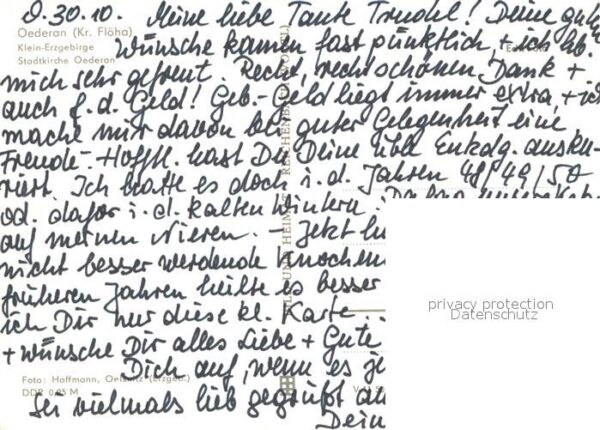 O. 30.10. Meine liebe Tante Trudel! Deine guten
Oederan (Kr. Flöha)
Klein-Erzgebirge
Stadtkirche Oederan
Wünsche kamen fast pünktlich, + ich hb.
mich sehr gefreut. Recht, recht schönen Dank +
auch f. d. Geld! Geb.-Geld liegt immer extra, + ich
mache mir davon bei guter Gelegenheit eine
Freude. Hofftl. hast Du Deine üble Erkdg. ausku-
riert. Ich hatte es doch i. d. Jahren 48/49/50
od. dafor i. d. kalten Wintern.
auf meinen Nieren. – Jetzt
nicht besser werdende Knochen
früheren Jahren heilte es besser
ich Dir nur diese kl. Karte
+ wünsche Dir alles Liebe + Gute
Dich auf, wenn es
Foto: Hoffmann, (Erzgeb.)
DDR 0,25 M
Sei vielmals lieb gegrüßt
Dein
privacy protection
Datenschutz